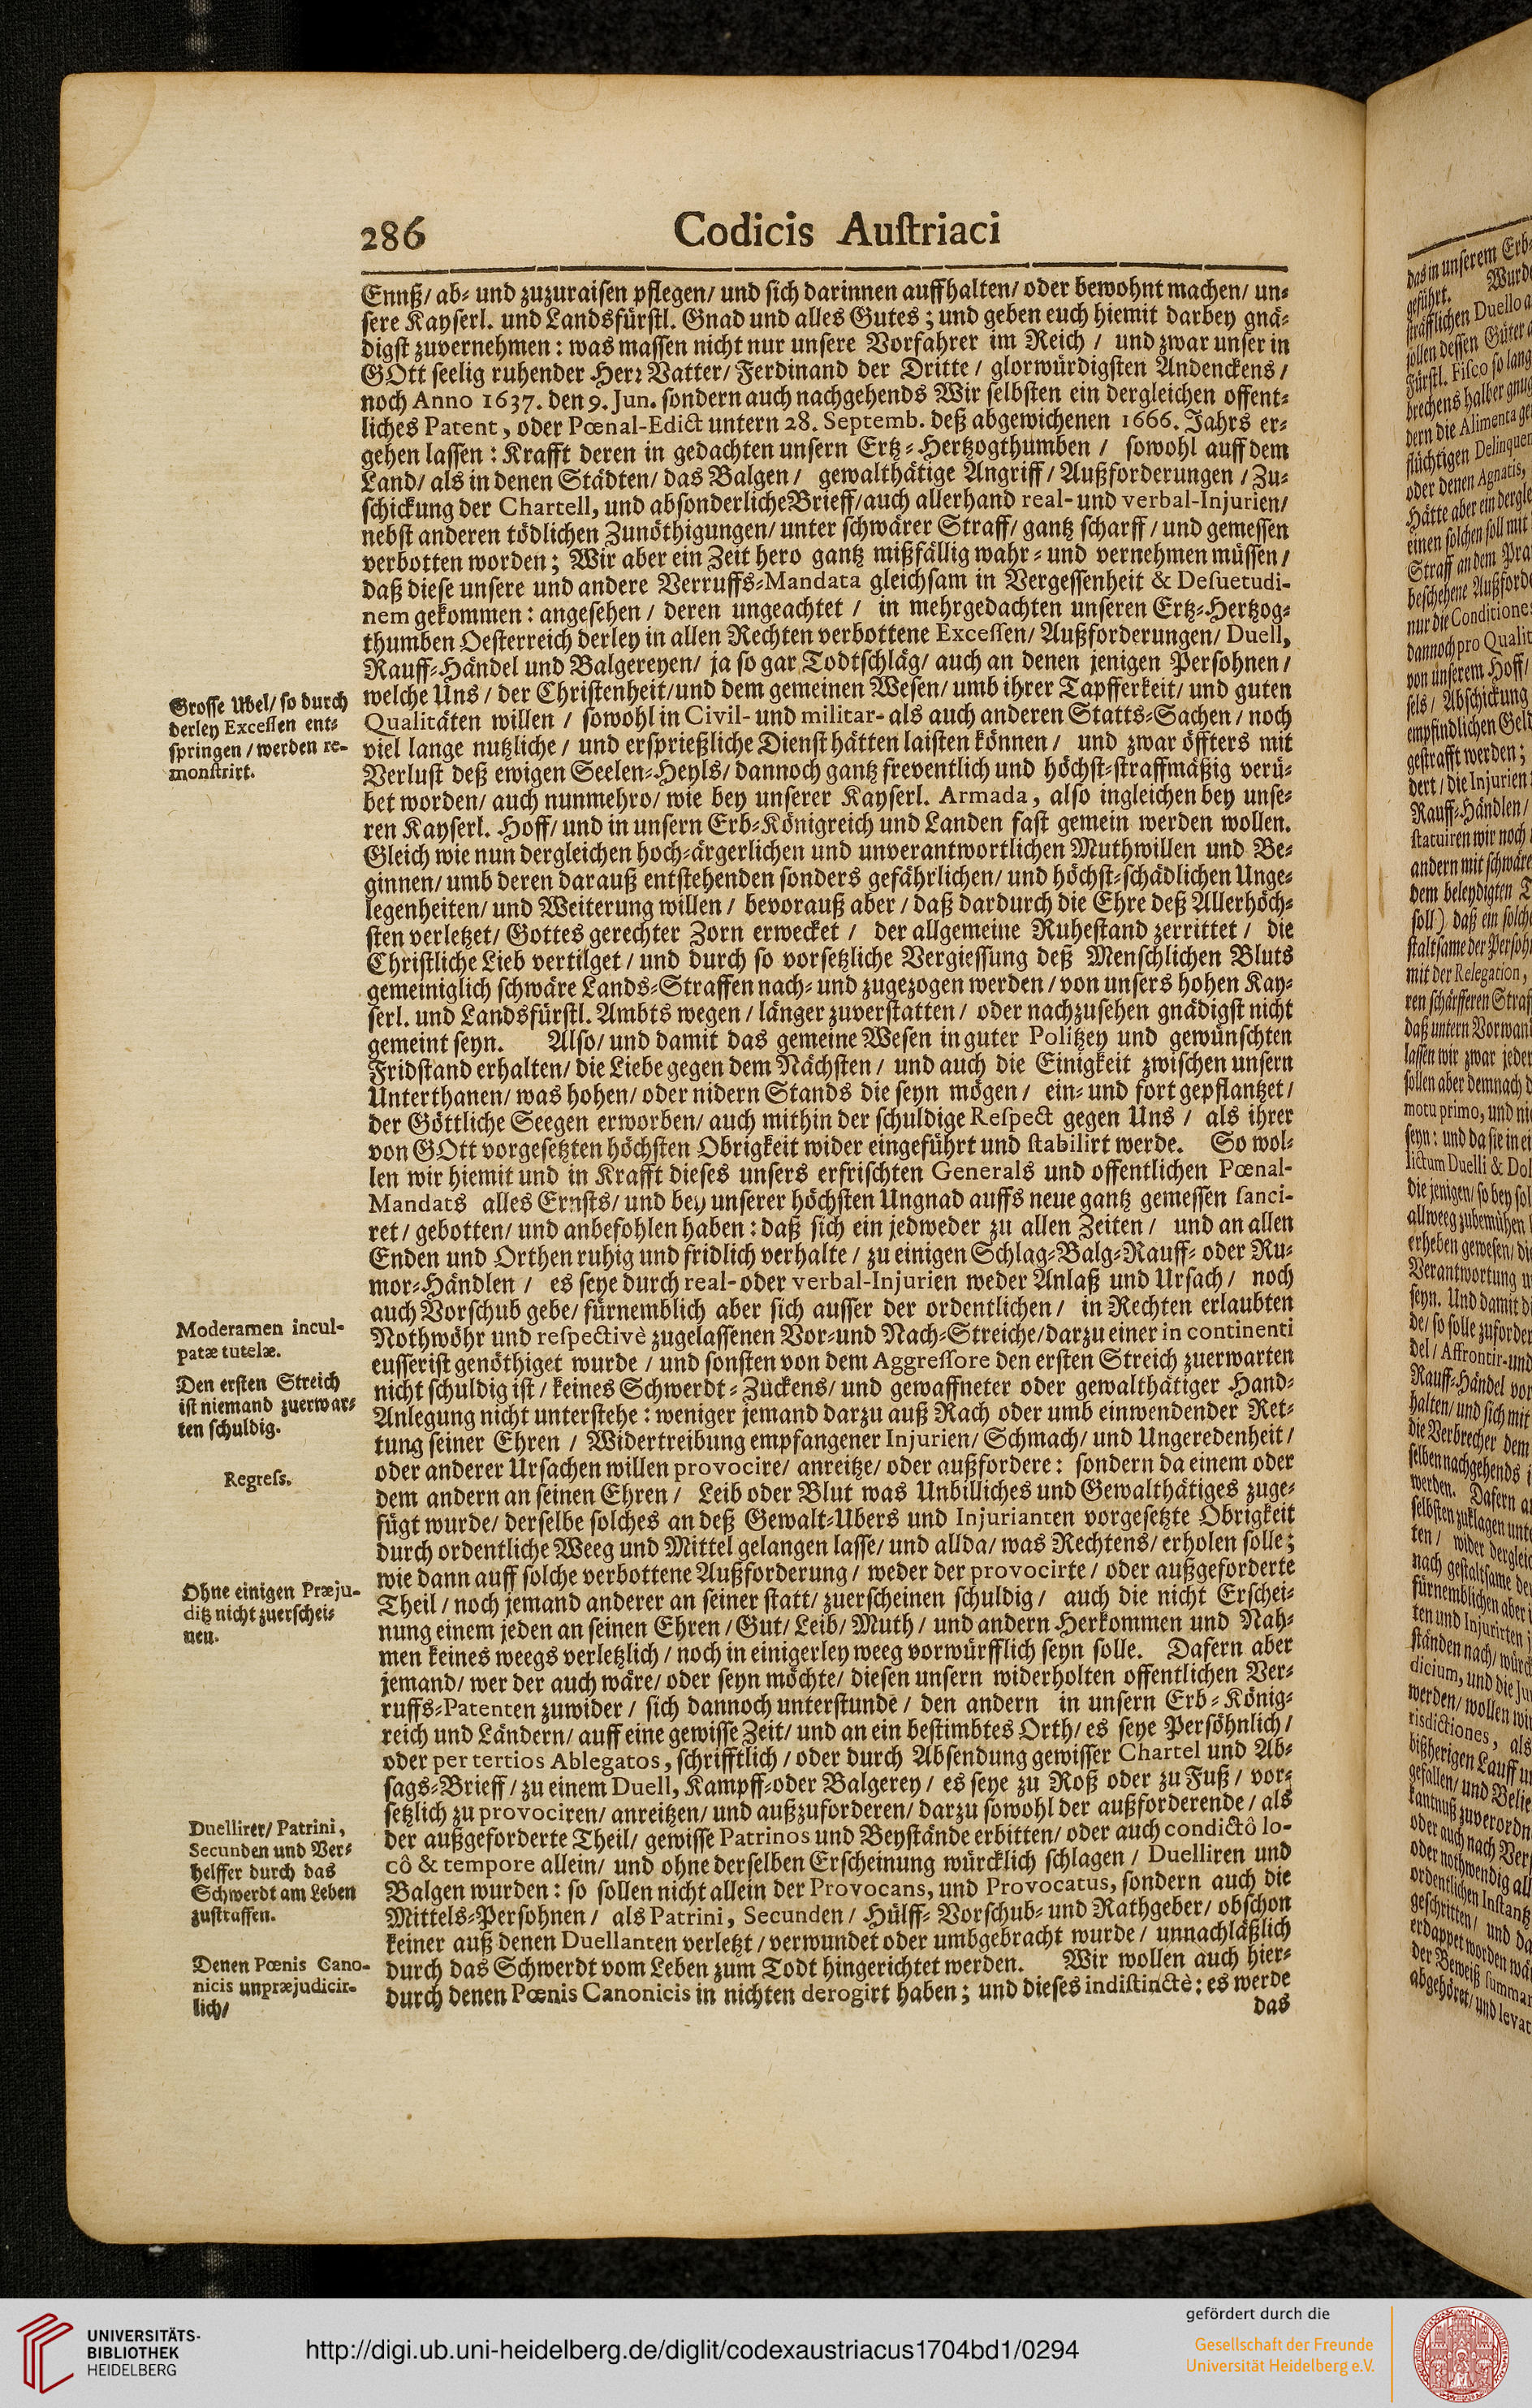 286 Codicis Auſtriaci
Ennß/ ab- und zuzuraisen pflegen/ und sich darinnen auffhalten/ oder bewohnt machen/ un-
sere Kayserl. und Landsfürstl. Gnad und alles Gutes; und geben euch hiemit darbey gnä-
digst zuvernehmen: was massen nicht nur unsere Vorfahrer im Reich / und zwar unser in
GOtt seelig ruhender Herr Vatter/ Ferdinand der Dritte / glorwürdigsten Andenckens /
noch Anno 1637. den 9. Jun. sondern auch nachgehends Wir selbsten ein dergleichen offent-
liches Patent, oder Pœnal-Edict untern 28. Septemb. deß abgewichenen 1666. Jahrs er-
gehen lassen: Krafft deren in gedachten unsern Ertz-Hertzogthumben / sowohl auff dem
Land/ als in denen Städten/ das Balgen / gewalthätige Angriff / Außforderungen / Zu-
schickung der Chartell, und absonderliche Brieff/ auch allerhand real- und verbal-Injurien/
nebst anderen tödlichen Zunöthigungen/ unter schwärer Straff/ gantz scharff / und gemessen
verbotten worden; Wir aber ein Zeit hero gantz mißfällig wahr- und vernehmen müssen /
daß diese unsere und andere Verruffs-Mandata gleichsam in Vergessenheit & Deſuetudi-
nem gekommen: angesehen / deren ungeachtet / in mehrgedachten unseren Ertz-Hertzog-
thumben Oesterreich derley in allen Rechten verbottene Exceſſen/ Außforderungen/ Duell,
Rauff-Händel und Balgereyen/ ja so gar Todtschläg/ auch an denen jenigen Persohnen /
Grosse Ubel/ so durch
derley Exceſſen ent-
springen / werden re-
monſtrirt.
welche Uns / der Christenheit/und dem gemeinen Wesen/ umb ihrer Tapfferkeit/ und guten
Qualitäten willen / sowohl in Civil- und militar- als auch anderen Statts-Sachen / noch
viel lange nutzliche / und ersprießliche Dienst hätten laisten können / und zwar öffters mit
Verlust deß ewigen Seelen-Heyls/ dannoch gantz freventlich und höchst-straffmäßig verü-
bet worden/ auch nunmehro/ wie bey unserer Kayserl. Armada, also ingleichen bey unse-
ren Kayserl. Hoff/ und in unsern Erb-Königreich und Landen fast gemein werden wollen.
Gleich wie nun dergleichen hoch-ärgerlichen und unverantwortlichen Muthwillen und Be-
ginnen/ umb deren darauß entstehenden sonders gefährlichen/ und höchst-schädlichen Unge-
legenheiten/ und Weiterung willen / bevorauß aber / daß dardurch die Ehre deß Allerhöch-
sten verletzet/ Gottes gerechter Zorn erwecket / der allgemeine Ruhestand zerrittet / die
Christliche Lieb vertilget / und durch so vorsetzliche Vergiessung deß Menschlichen Bluts
gemeiniglich schwäre Lands-Straffen nach- und zugezogen werden / von unsers hohen Kay-
serl. und Landsfürstl. Ambts wegen / länger zuverstatten / oder nachzusehen gnädigst nicht
gemeint seyn. Also/ und damit das gemeine Wesen in guter Politzey und gewünschten
Fridstand erhalten/ die Liebe gegen dem Nächsten / und auch die Einigkeit zwischen unsern
Unterthanen/ was hohen/ oder nidern Stands die seyn mögen / ein- und fort gepflantzet /
der Göttliche Seegen erworben/ auch mithin der schuldige Reſpect gegen Uns / als ihrer
von GOtt vorgesetzten höchsten Obrigkeit wider eingeführt und ſtabilirt werde. So wol-
len wir hiemit und in Krafft dieses unsers erfrischten Generals und offentlichen Pœnal-
Mandats alles Ernsts/ und bey unserer höchsten Ungnad auffs neue gantz gemessen ſanci-
ret / gebotten/ und anbefohlen haben: daß sich ein jedweder zu allen Zeiten / und an allen
Enden und Orthen ruhig und fridlich verhalte / zu einigen Schlag-Balg-Rauff- oder Ru-
mor-Händlen / es seye durch real- oder verbal-Injurien weder Anlaß und Ursach / noch
auch Vorschub gebe/ fürnemblich aber sich ausser der ordentlichen / in Rechten erlaubten
Moderamen incul-
patæ tutelæ.
Nothwöhr und reſpectivè zugelassenen Vor-und Nach-Streiche/darzu einer in continenti
eusserist genöthiget wurde / und sonsten von dem Aggreſſore den ersten Streich zuerwarten
Den ersten Streich
ist niemand zuerwar-
ten schuldig.
nicht schuldig ist / keines Schwerdt-Zuckens/ und gewaffneter oder gewalthätiger Hand-
Anlegung nicht unterstehe: weniger jemand darzu auß Rach oder umb einwendender Ret-
tung seiner Ehren / Widertreibung empfangener Injurien/ Schmach/ und Ungeredenheit /
Regreſs.
oder anderer Ursachen willen provocire/ anreitze/ oder außfordere: sondern da einem oder
dem andern an seinen Ehren / Leib oder Blut was Unbilliches und Gewalthätiges zuge-
fügt wurde/ derselbe solches an deß Gewalt-Ubers und Injurianten vorgesetzte Obrigkeit
durch ordentliche Weeg und Mittel gelangen lasse/ und allda/ was Rechtens/ erholen solle;
wie dann auff solche verbottene Außforderung / weder der provocirte / oder außgeforderte
Ohne einigen Præju-
ditz nicht zuerschei-
nen.
Theil / noch jemand anderer an seiner statt/ zuerscheinen schuldig / auch die nicht Erschei-
nung einem jeden an seinen Ehren / Gut/ Leib/ Muth / und andern Herkommen und Nah-
men keines weegs verletzlich / noch in einigerley weeg vorwürfflich seyn solle. Dafern aber
jemand/ wer der auch wäre/ oder seyn möchte/ diesen unsern widerholten offentlichen Ver-
ruffs-Patenten zuwider / sich dannoch unterstunde / den andern in unsern Erb-König-
reich und Ländern/ auff eine gewisse Zeit/ und an ein bestimbtes Orth/ es seye Persöhnlich /
oder per tertios Ablegatos, schrifftlich / oder durch Absendung gewisser Chartel und Ab-
sags-Brieff / zu einem Duell, Kampff-oder Balgerey / es seye zu Roß oder zu Fuß / vor-
setzlich zu provociren/ anreitzen/ und außzuforderen/ darzu sowohl der außforderende / als
Duellirer/ Patrini,
Secunden und Ver-
helffer durch das
Schwerdt am Leben
zustraffen.
der außgeforderte Theil/ gewisse Patrinos und Beystände erbitten/ oder auch condictô lo-
cô & tempore allein/ und ohne derselben Erscheinung würcklich schlagen / Duelliren und
Balgen wurden: so sollen nicht allein der Provocans, und Provocatus, sondern auch die
Mittels-Persohnen / als Patrini, Secunden / Hülff- Vorschub- und Rathgeber/ obschon
keiner auß denen Duellanten verletzt / verwundet oder umbgebracht wurde / unnachläßlich
Denen Pœnis Cano-
nicis unpræjudicir-
lich/
durch das Schwerdt vom Leben zum Todt hingerichtet werden. Wir wollen auch hier-
durch denen Pœnis Canonicis in nichten derogirt haben; und dieses indiſtinctè: es werde
das
das in unserem Erb-
geführt. Wurde
sträfflichen Duello a
sollen dessen Güter
Fürstl. Fiſco so lang
brechens halber
dern die Alimenta
flüchtigen Delinquen
oder denen Agnatis,
Hätte aber ein dergle
einen solchen soll mit
Straff an dem
beschehene Außford
nur die Conditione
dannoch pro Qualit
von unserem Hoff/
sels / Abschickung
empfindlichen Geld
gestrafft werden;
dert / die Injurien
Rauff-Händlen /
ſtatuiren wir noch
andern mit schwäre
dem beleydigten
soll) daß ein solch
staltsame der Persoh
mit der Relegation,
ren schärfferen Straf
daß untern Vorwan
lassen wir zwar jeder
sollen aber demnach
motu primo, und ni
seyn: und da sie in ei
lictum Duelli & Dol
die jenigen/ so bey sol
allweeg zubemühen
erheben gewesen/ di
Verantwortung
seyn. Und damit di
de/ so solle zuforder
del / Affrontir- und
Rauff-Händel vor
halten/ und sich mit
die Verbrecher dem
selben nachgehends
werden. Dafern
selbsten zuklagen unt
ten / wider dergleic
nach gestaltsame der
fürnemblichen aber
ten und Injurirten
ständen nach/ würd
dicium, und die Ju
werden/ wollen wir
risdictiones, als
bißherigen Lauff
gefallen/ und Belie
kantnuß zuverordn
oder auch nach Ver
oder nothwendig all
ordentlichen Inſtantz
geschritten / und da
erdappet worden wä
der Beweiß ſummar
abgehöret/ und levat
UNIVERSITÄTS-
BIBLIOTHEK
HEIDELBERG
http://digi.ub.uni-heidelberg.de/diglit/codexaustriacus1704bd1/0294
gefördert durch die
Gesellschaft der Freunde
Universität Heidelberg e.V.